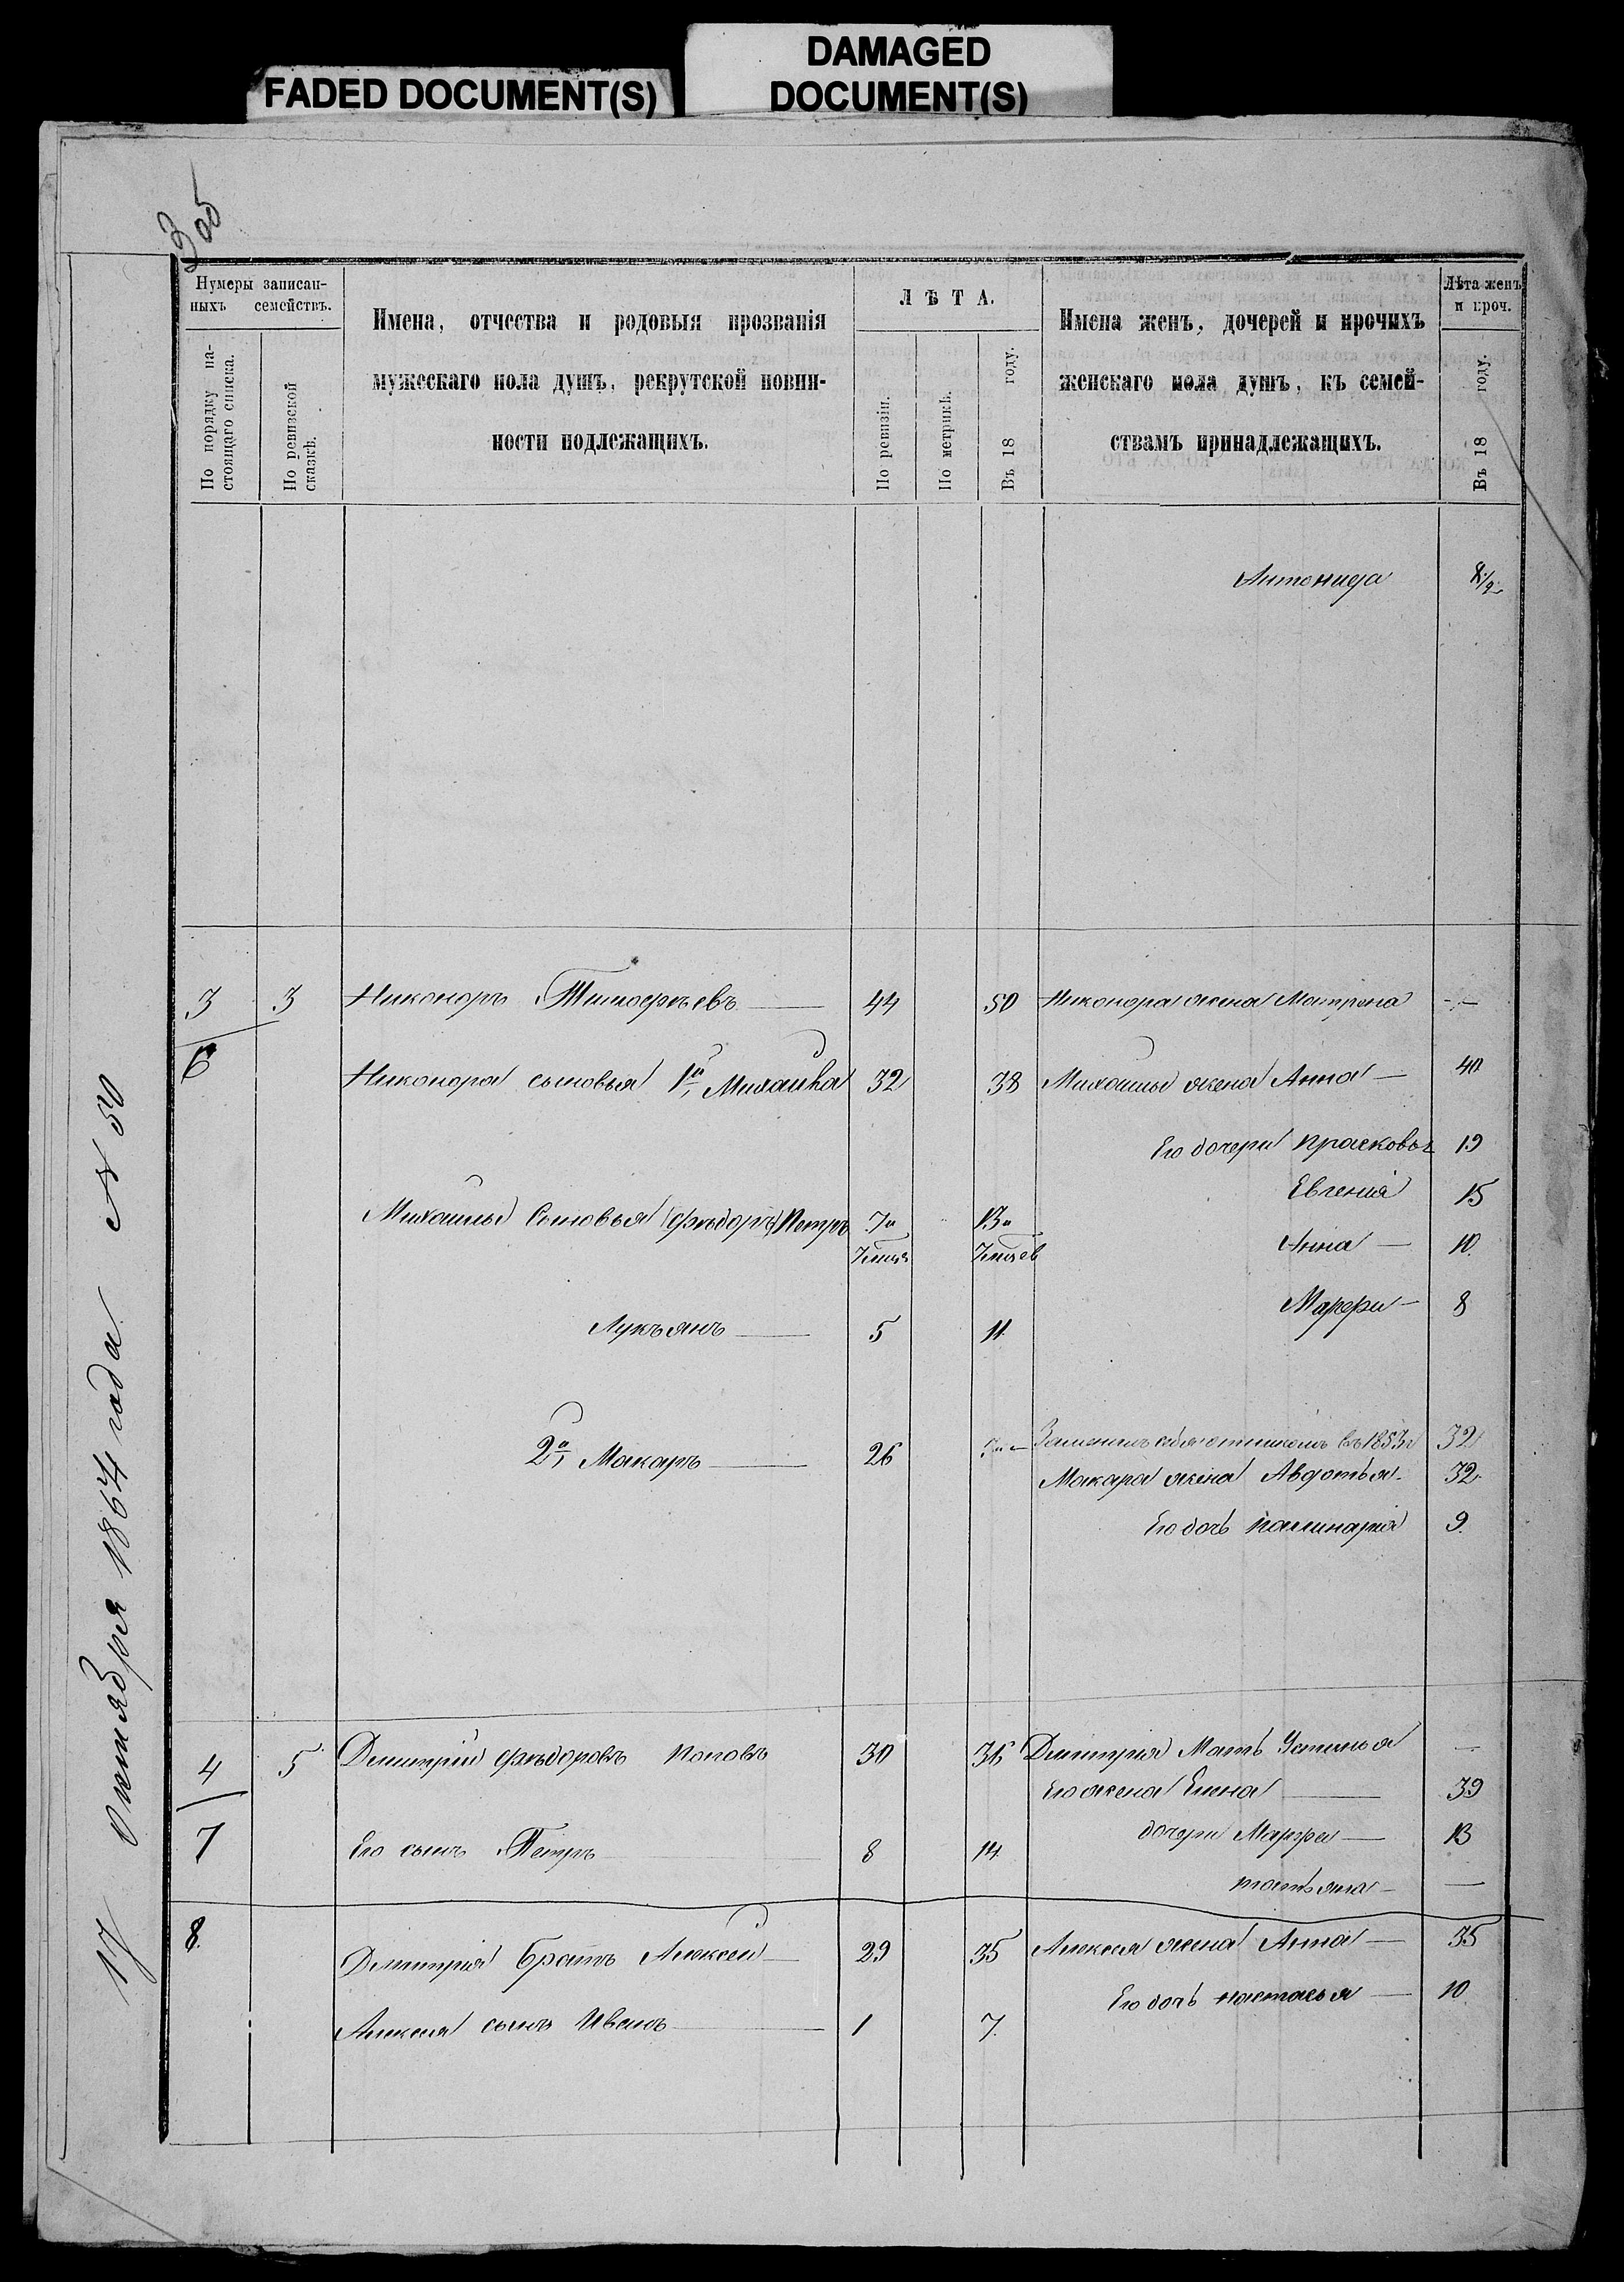 FADED DOCUMENT(S)
DAMAGED
DOCUMENT(S)
305
17 октября 1864 года N 50
Нумеры записан-
ныхъ семействъ.
По порядку на-
стоящаго списка.
По ревизской
сказкѣ.
Имена, отчества и родовыя прозванія
мужескаго пола душъ, рекрутской повин-
ности подлежащихъ.
ЛѢТА.
По ревизіи.
По метрикѣ.
Въ 18 году.
Имена женъ, дочерей и прочихъ
женскаго пола душъ, къ семей-
ствамъ принадлежащихъ.
Лѣта женъ
и проч.
Въ 18 году.
Антонида
3 3 Никоноръ Тимофѣевъ 44 50 Никонора жена Матрона —
6 Никонора сыновья 1й, Михайла 32 38 Михайлы жена Анна — 40
Его дочери Прасковья 19
Евгенія 15
Михайлы Сыновья (Фѣдоръ) Петръ 7и 13и
Анна — 10
Марфи — 8
Лукьянъ 5 11
2й, Макаръ 26 въ 1853 32
Макара жена Авдотья 32
Его дочь Палинарія 9
4 5 Дмитрій Фѣдоровъ Поповъ 30 36 Дмитрія Мать Устинья —
Его жена Елена 39
7 Его сынъ Петръ 8 14 дочери Марфа 13
татьяна — —
8. Дмитрія братъ Алексей 29 35 Алексея жена Анна — 35
Его дочь настасья 10
Алексея сынъ Иванъ 1 7.